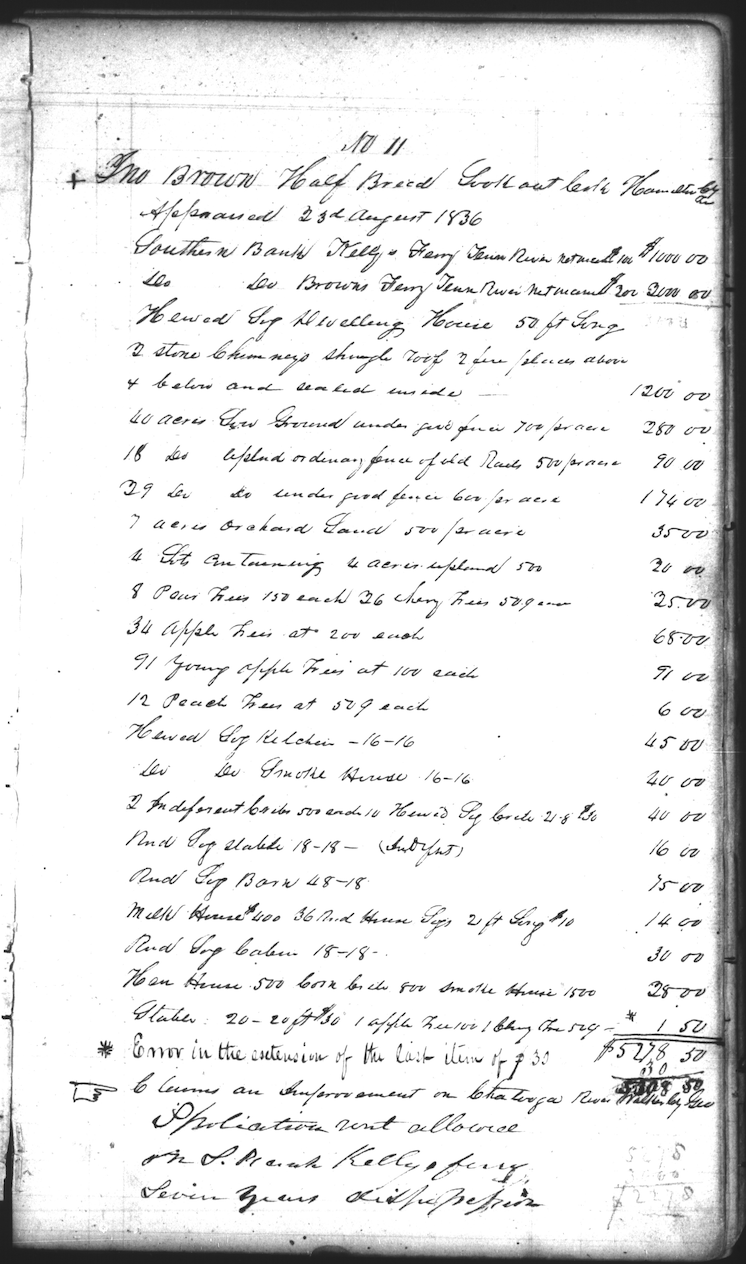 No 11
+ Jno Brown Half Breed Look out Creek Hamilton Cty Ten
Appraised 23d August 1836
Southern Bank Kellys Ferry Tenn River net income $100 $1000 00
Do Do Browns Ferry Tenn River Net income $200 2000 00
Hewed Log Dwelling House 50 ft Long
2 stone Chimneys shingle roof 2 fire places above
4 below and sealed inside — 1200 00
40 acres Low Ground under good fence 700 pr acre 280 00
18 Do upland ordinary fence of old Rails 500 pr acre 90 00
29 Do Do under good fence 600 pr acre 174 00
7 acres Orchard Land 500 pr acre 35 00
4 Lots containing 4 acres upland 500 20 00
8 Pear Trees 150 each 26 Chery Trees 50¢ each 25.00
34 Apple Trees at 200 each 68 00
91 Young apple Trees at 100 each 91 00
12 Peach Trees at 50¢ each 6 00
Hewed Log Kitchen - 16-16 45 00
Do Do Smoke House 16-16 20 00
2 Indeferent Cribs 500 each 10 Hewed Log Crib 21-8 $30 40 00
Rnd Log stable 18-18 — (Indfrnt) 16 00
Rnd Log Barn 48-18 75 00
Milk House $400 36 Rnd House Logs 21 ft Long $10 14 00
Rnd Log Cabin 18-18- 30 00
Hen House 500 Corn Crib 800 Smoke House 1500 28 00
Stable 20-20 ft $30 1 apple Tree 100 1 Chery Tree 50¢ — * 1 50
* Error in the extension of the last item of $ 30 $5278 50
30
5308 50
☞ Claims an Improvement on Chatooga River Walker Cty Geo
Spoliation rent allowed
on Kellys ferry
Seven Years dispossession
5278
$2278